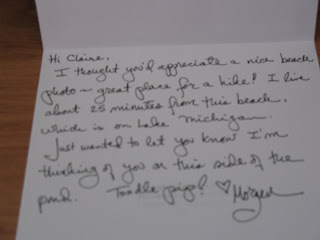 Hi Claire,
I thought you'd appreciate a nice beach
photo – great place for a hike! I live
about 25 minutes from this beach,
which is on Lake Michigan.
Just wanted to let you know I'm
thinking of you on this side of the
pond. Toodle pigs! ♡ Morgen